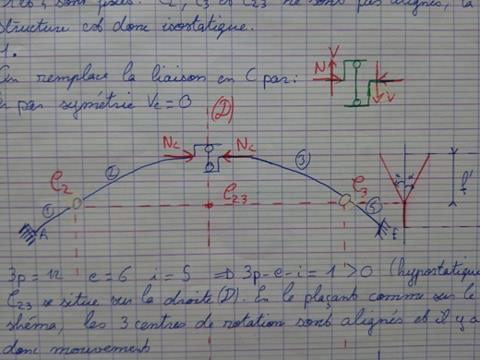 sont fixés. C₂, C₃ et C₂₃ ne sont pas alignés, la
structure est donc isostatique.
1.
On remplace la liaison en C par:
par symétrie Vc = 0
V
N
V
(D)
Nc
Nc
②
③
C₂
C₃
①
C₂₃
⑤
A
E
f'
3p = 12 e = 6 i = 5 ⇒ 3p-e-i = 1 > 0 (hypostatique
C₂₃ se situe sur la droite (D). En le plaçant comme sur le
shéma, les 3 centres de rotation sont alignés et il y a
donc mouvement